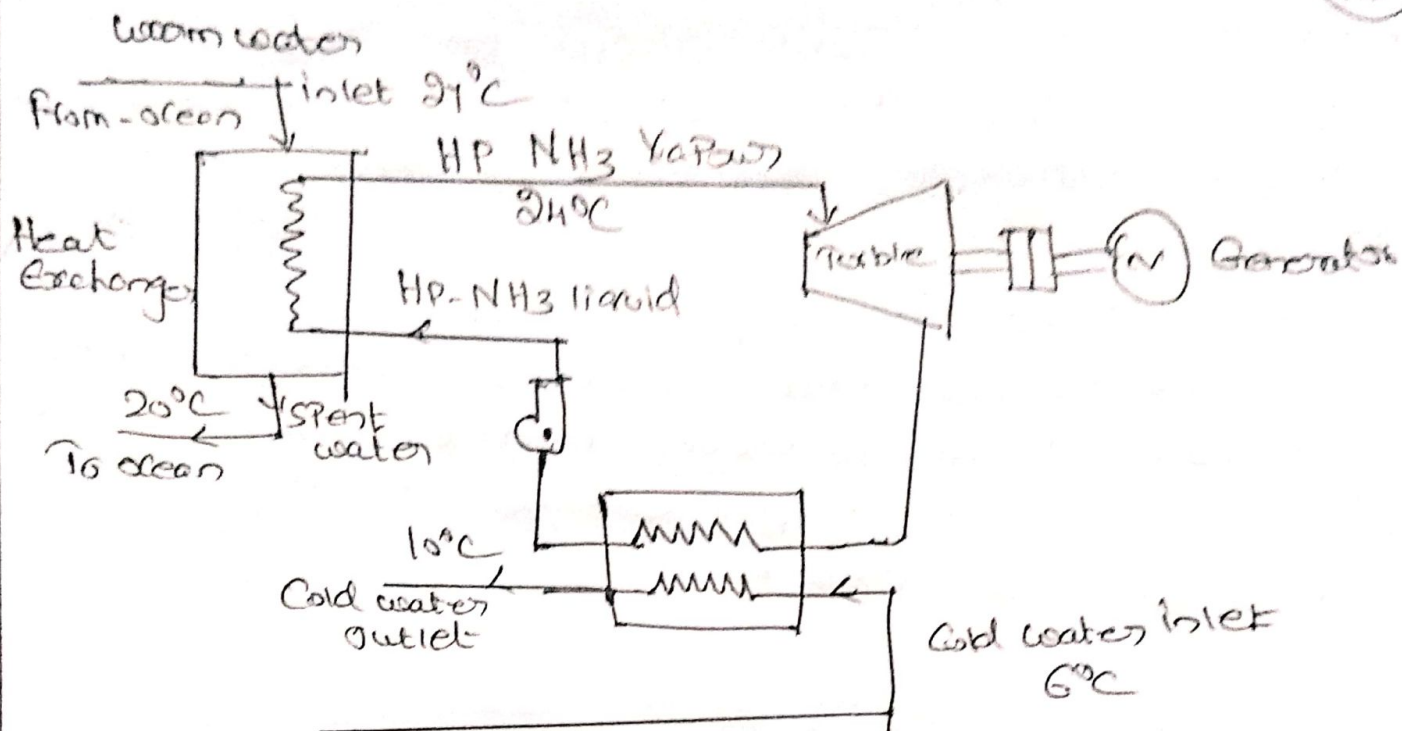 warm water
from-ocean
inlet 27°C
HP NH3 Vapour
24°C
Heat
Exchanger
HP-NH3 liquid
Turbine
Generator
20°C
To ocean
spent
water
10°C
Cold water
outlet
Cold water inlet
6°C